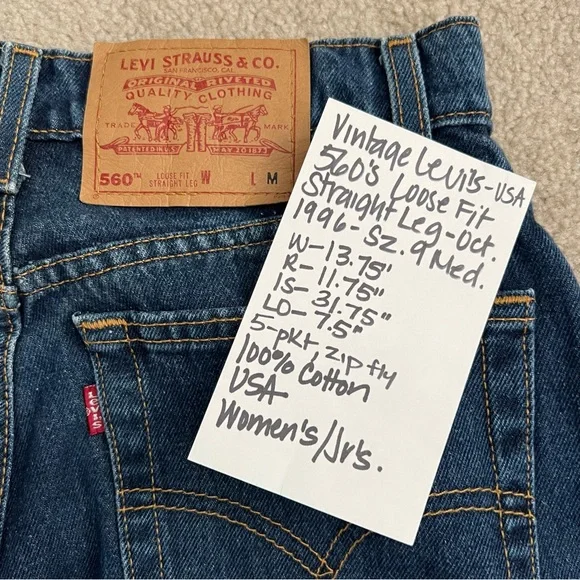 LEVI STRAUSS & CO.
SAN FRANCISCO, CAL.
ORIGINAL RIVETED
QUALITY CLOTHING
TRADE MARK
PATENTED IN U.S. MAY 20 1873
560™ LOUSE FIT STRAIGHT LEG W L M
LEVI'S
Vintage Levi's - USA
560's Loose Fit
Straight Leg - Oct.
1996 - Sz. 9 Med.
W - 13.75"
R - 11.75"
IS - 31.75"
LO - 7.5"
5-pkt, zip fly
100% Cotton
USA
Women's/Jrs.